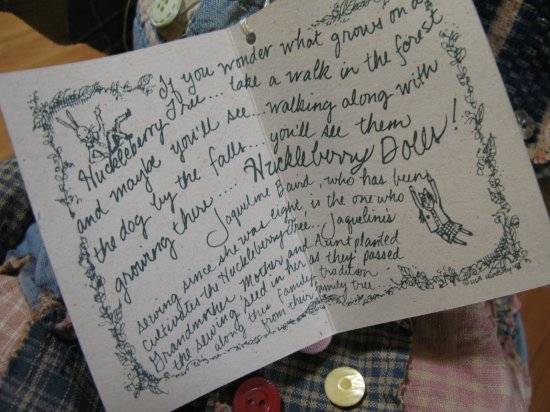 If you wonder what grows on a
Huckleberry Tree... take a walk in the forest
and maybe you'll see...walking along with
the dog by the falls... you'll see them
growing there.... Huckleberry Dolls!
Jaqueline Baird, who has been
sewing since she was eight, is the one who
cultivates the Huckleberry tree... Jaqueline's
Grandmother Mother, and Aunt planted
the sewing seed in her as they passed
along this family tradition
from their family tree...